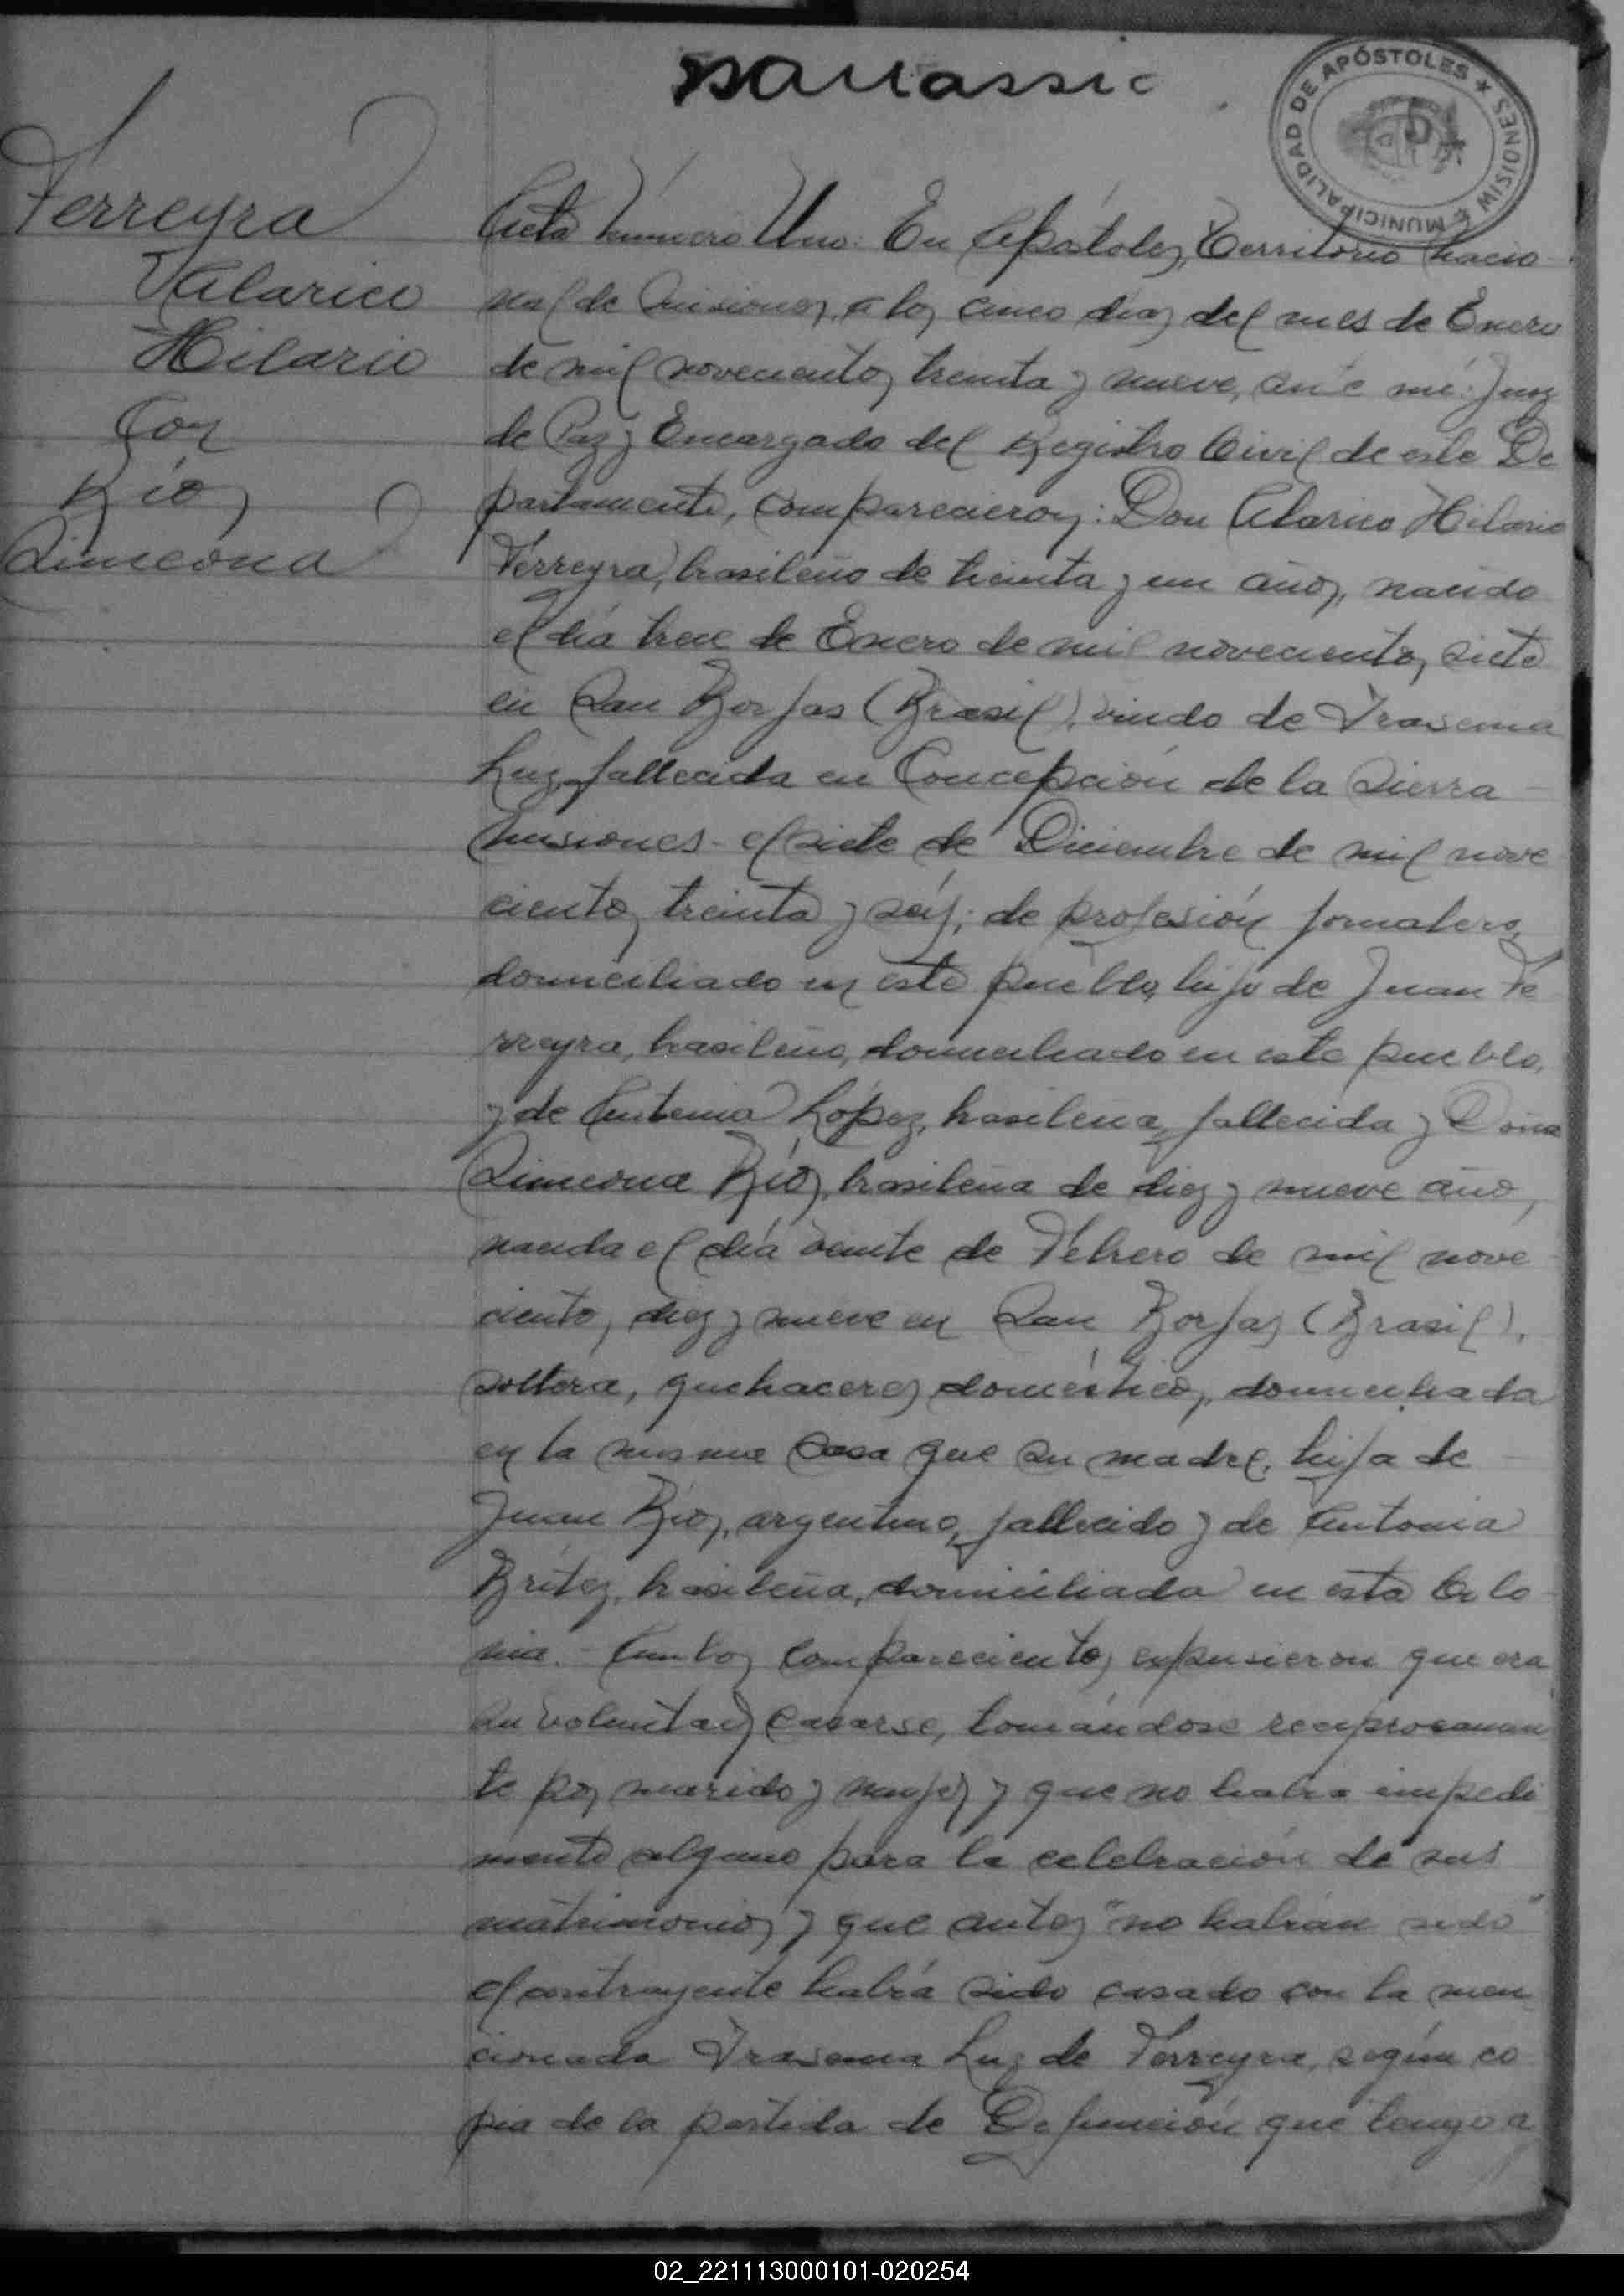 MUNICIPALIDAD DE APÓSTOLES ★ MISIONES
Ferreyra
Alarico
Hilario
Con
Ríos
Simeona
Acta número Uno: En Apóstoles, Territorio nacio-
nal de Misiones, a los cinco días del mes de Enero
de mil novecientos treinta y nueve, ante mí: Juez
de Paz y Encargado del Registro Civil de este De
partamento, comparecieron: Don Alarico Hilario
Ferreyra, brasileño de treinta y un años, nacido
el día trece de Enero de mil novecientos siete
en San Borjas (Brasil), viudo de
Luz, fallecida en Concepción de la Sierra -
Misiones - el siete de Diciembre de mil nove
cientos treinta y seis; de profesión jornalero,
domiciliado en este pueblo, hijo de Juan Fe
rreyra, brasileño, domiciliado en este pueblo,
y de López, brasileña, fallecida y Doña
Simeona Ríos, brasileña de diez y nueve años,
nacida el día veinte de Febrero de mil nove
cientos diez y nueve en San Borjas (Brasil),
soltera, quehaceres domésticos, domiciliada
en la misma casa que su madre, hija de -
Juan Ríos, argentino, fallecido y de Antonia
Brítez, brasileña, domiciliada en esta Colo
nia. - Ambos comparecientes expusieron que era
su voluntad casarse, tomándose reciprocamen
te por marido y mujer y que no había impedi
mento alguno para la celebración de sus
matrimonios y que antes "no habían sido"
el contrayente había sido casado con la men
cionada Luz de Ferreyra, según co
pia de la partida de Defunción que tengo a
02_221113000101-020254